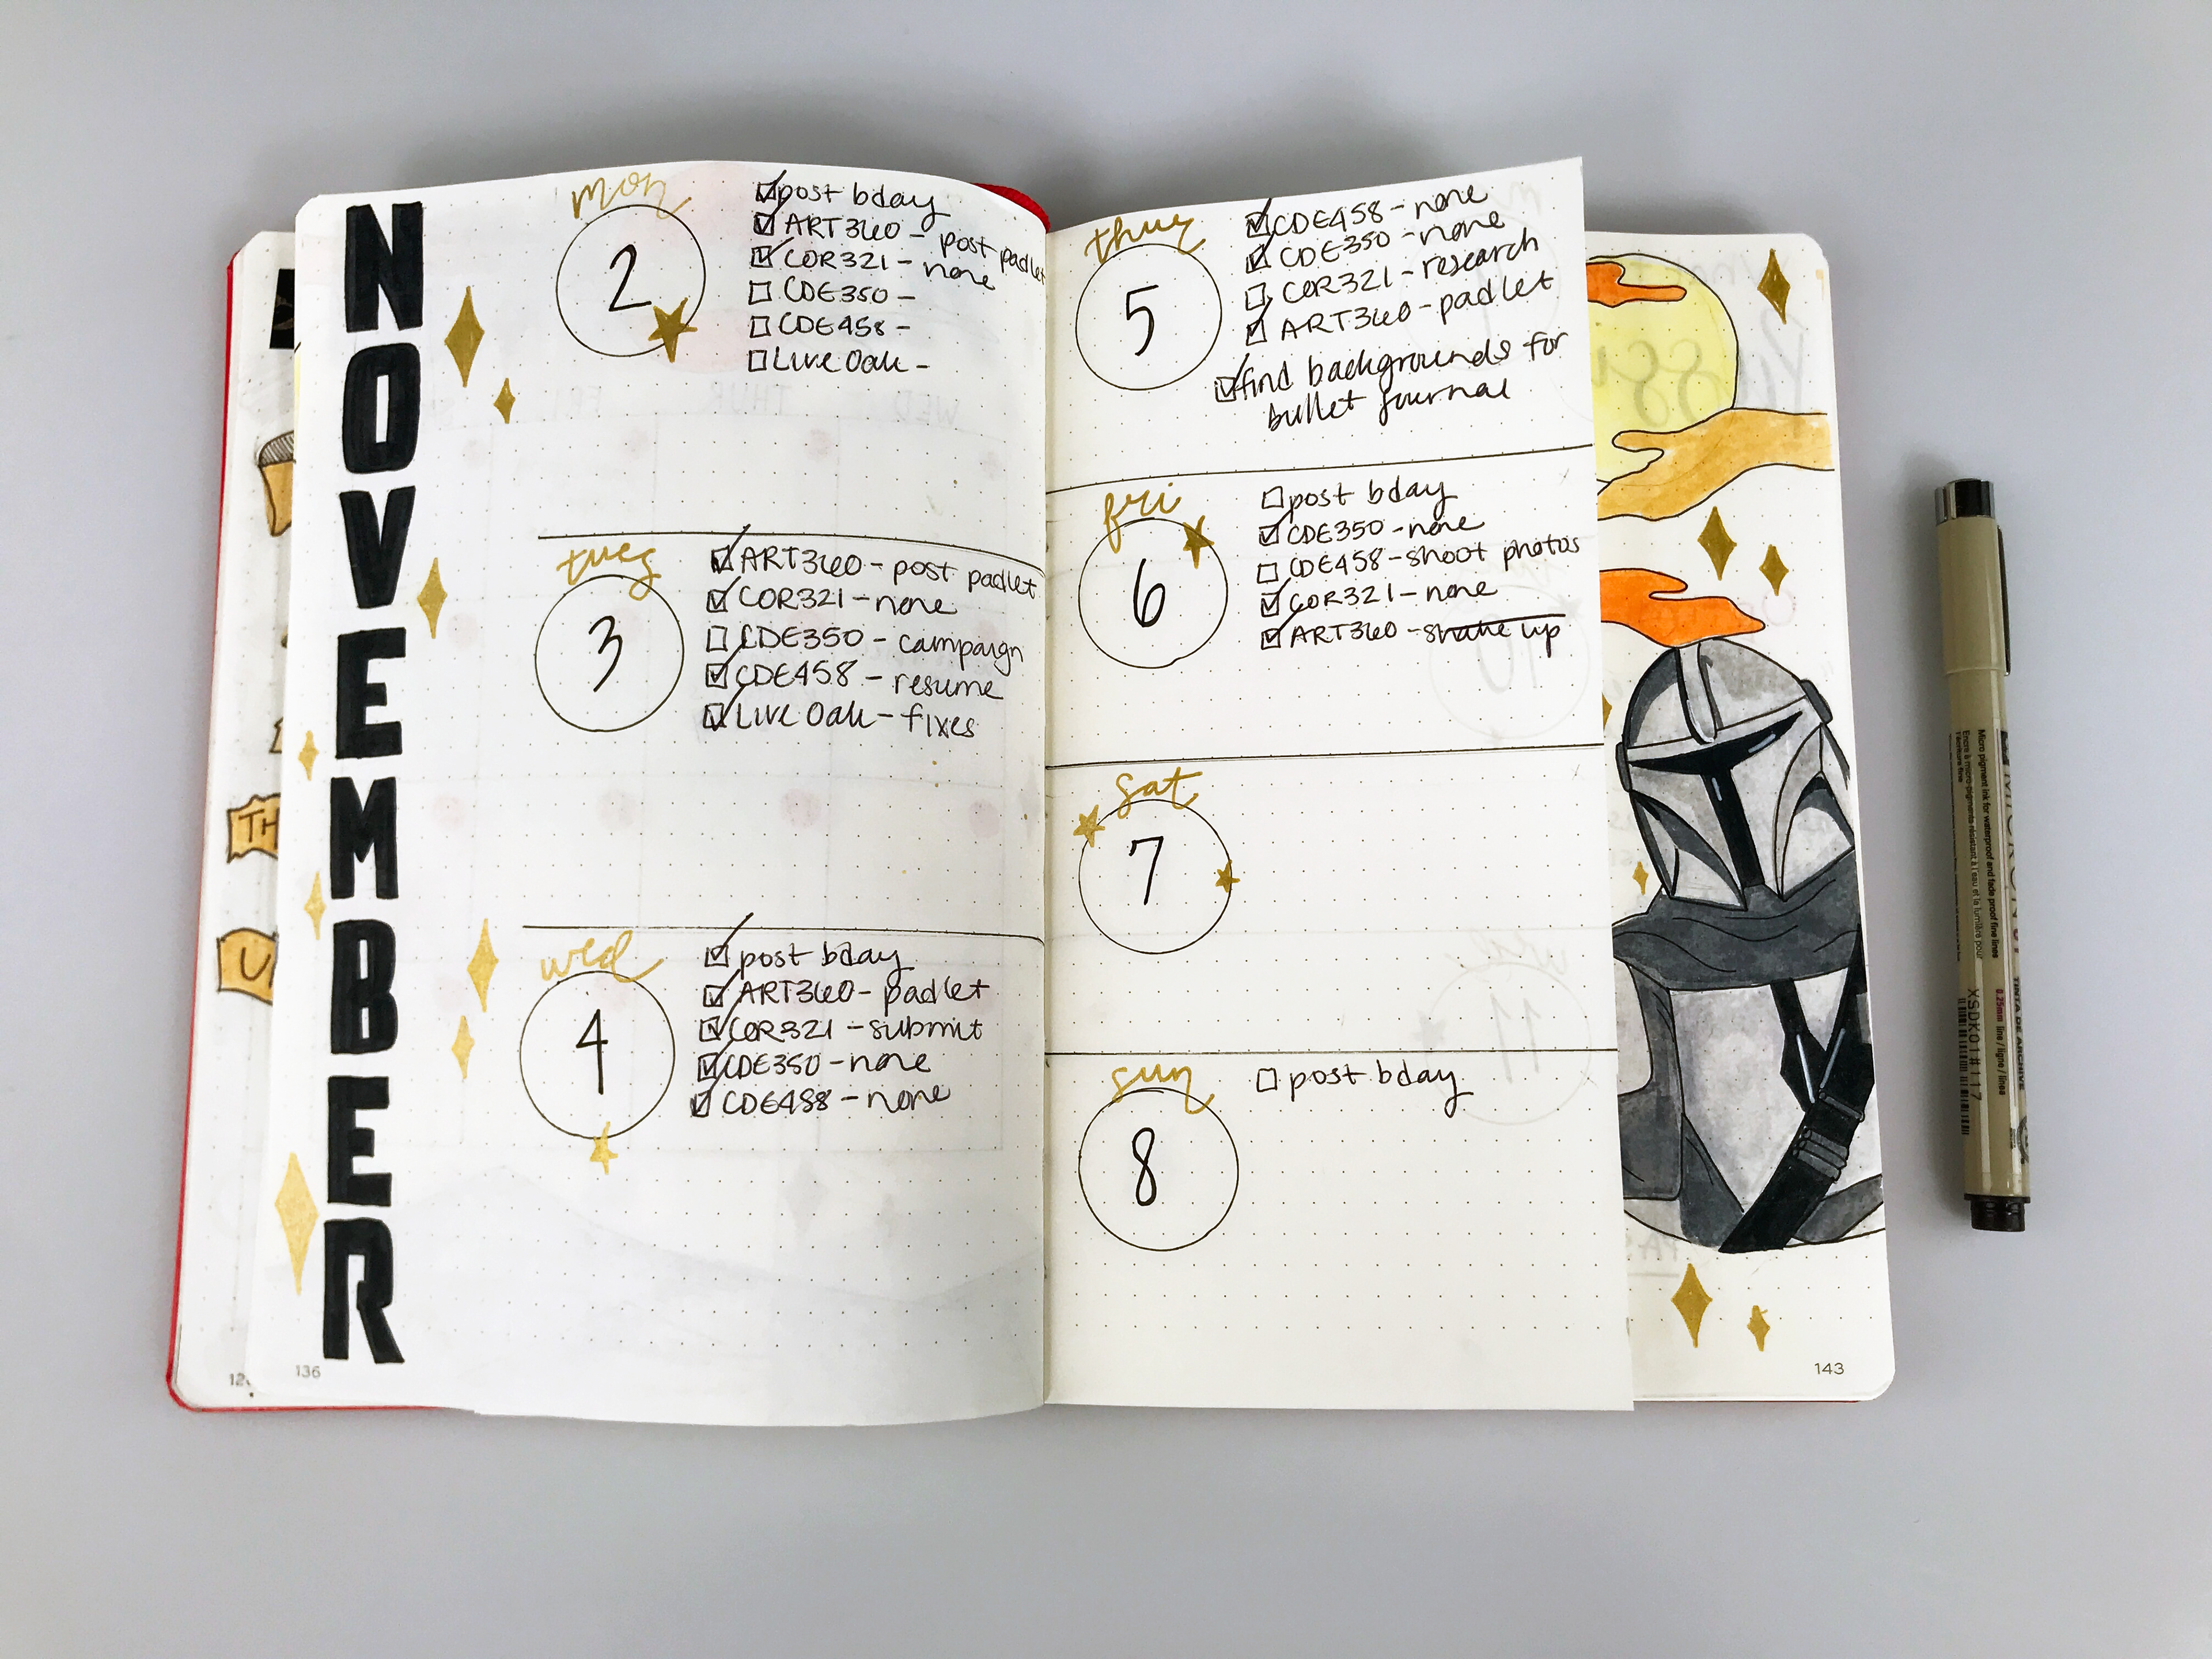 NOVEMBER
mon
2
post bday
ART360 - post padlet
COR321 - none
CDE350 -
CDE458 -
Live Oak -
tues
3
ART360 - post padlet
COR321 - none
CDE350 - campaign
CDE458 - resume
Live Oak - fixes
wed
4
post bday
ART360 - padlet
COR321 - submit
CDE350 - none
CDE458 - none
136
thur
5
CDE458 - none
CDE350 - none
COR321 - research
ART360 - padlet
find backgrounds for
bullet journal
fri
6
post bday
CDE350 - none
CDE458 - shoot photos
COR321 - none
ART360 - shake up
sat
7
sun
8
post bday
143
Micro pigment ink for waterproof and fade proof fine lines
0.25mm line / ligne / lines
XSDK01#117